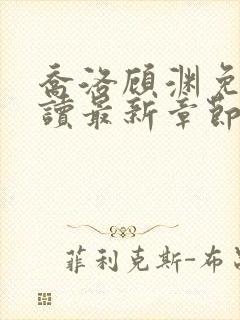 喬洛顧淵免
讀最新章節
菲利克斯-布